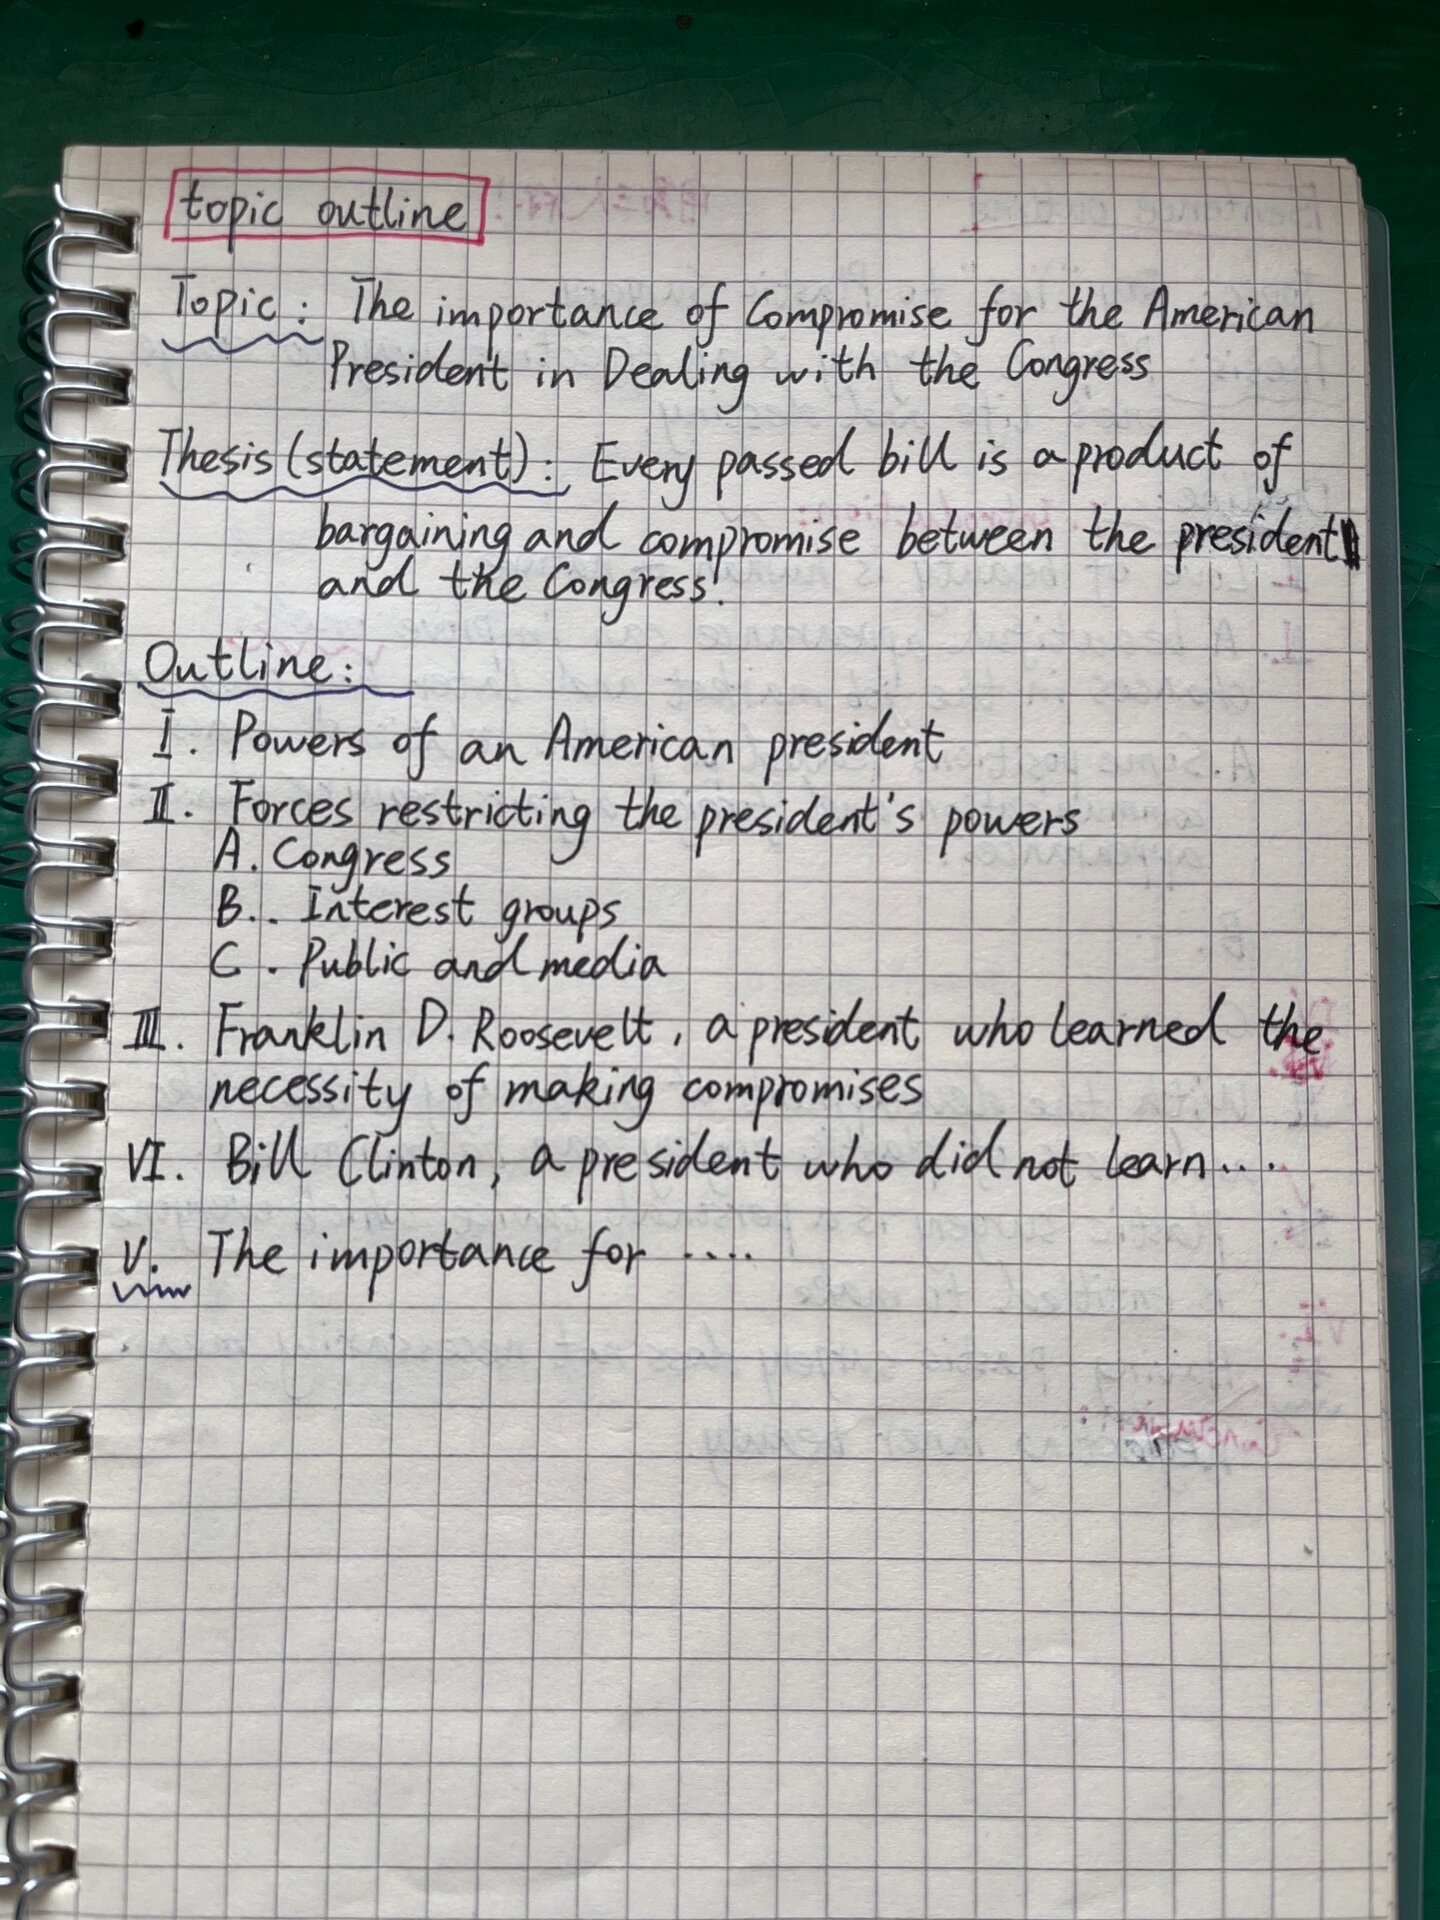 topic outline
Topic: The importance of Compromise for the American
President in Dealing with the Congress
Thesis (statement): Every passed bill is a product of
bargaining and compromise between the president
and the Congress.
Outline:
I. Powers of an American president
II. Forces restricting the president's powers
A. Congress
B.. Interest groups
C. Public and media
III. Franklin D. Roosevelt, a president who learned the
necessity of making compromises
VI. Bill Clinton, a president who did not learn....
V. The importance for ....